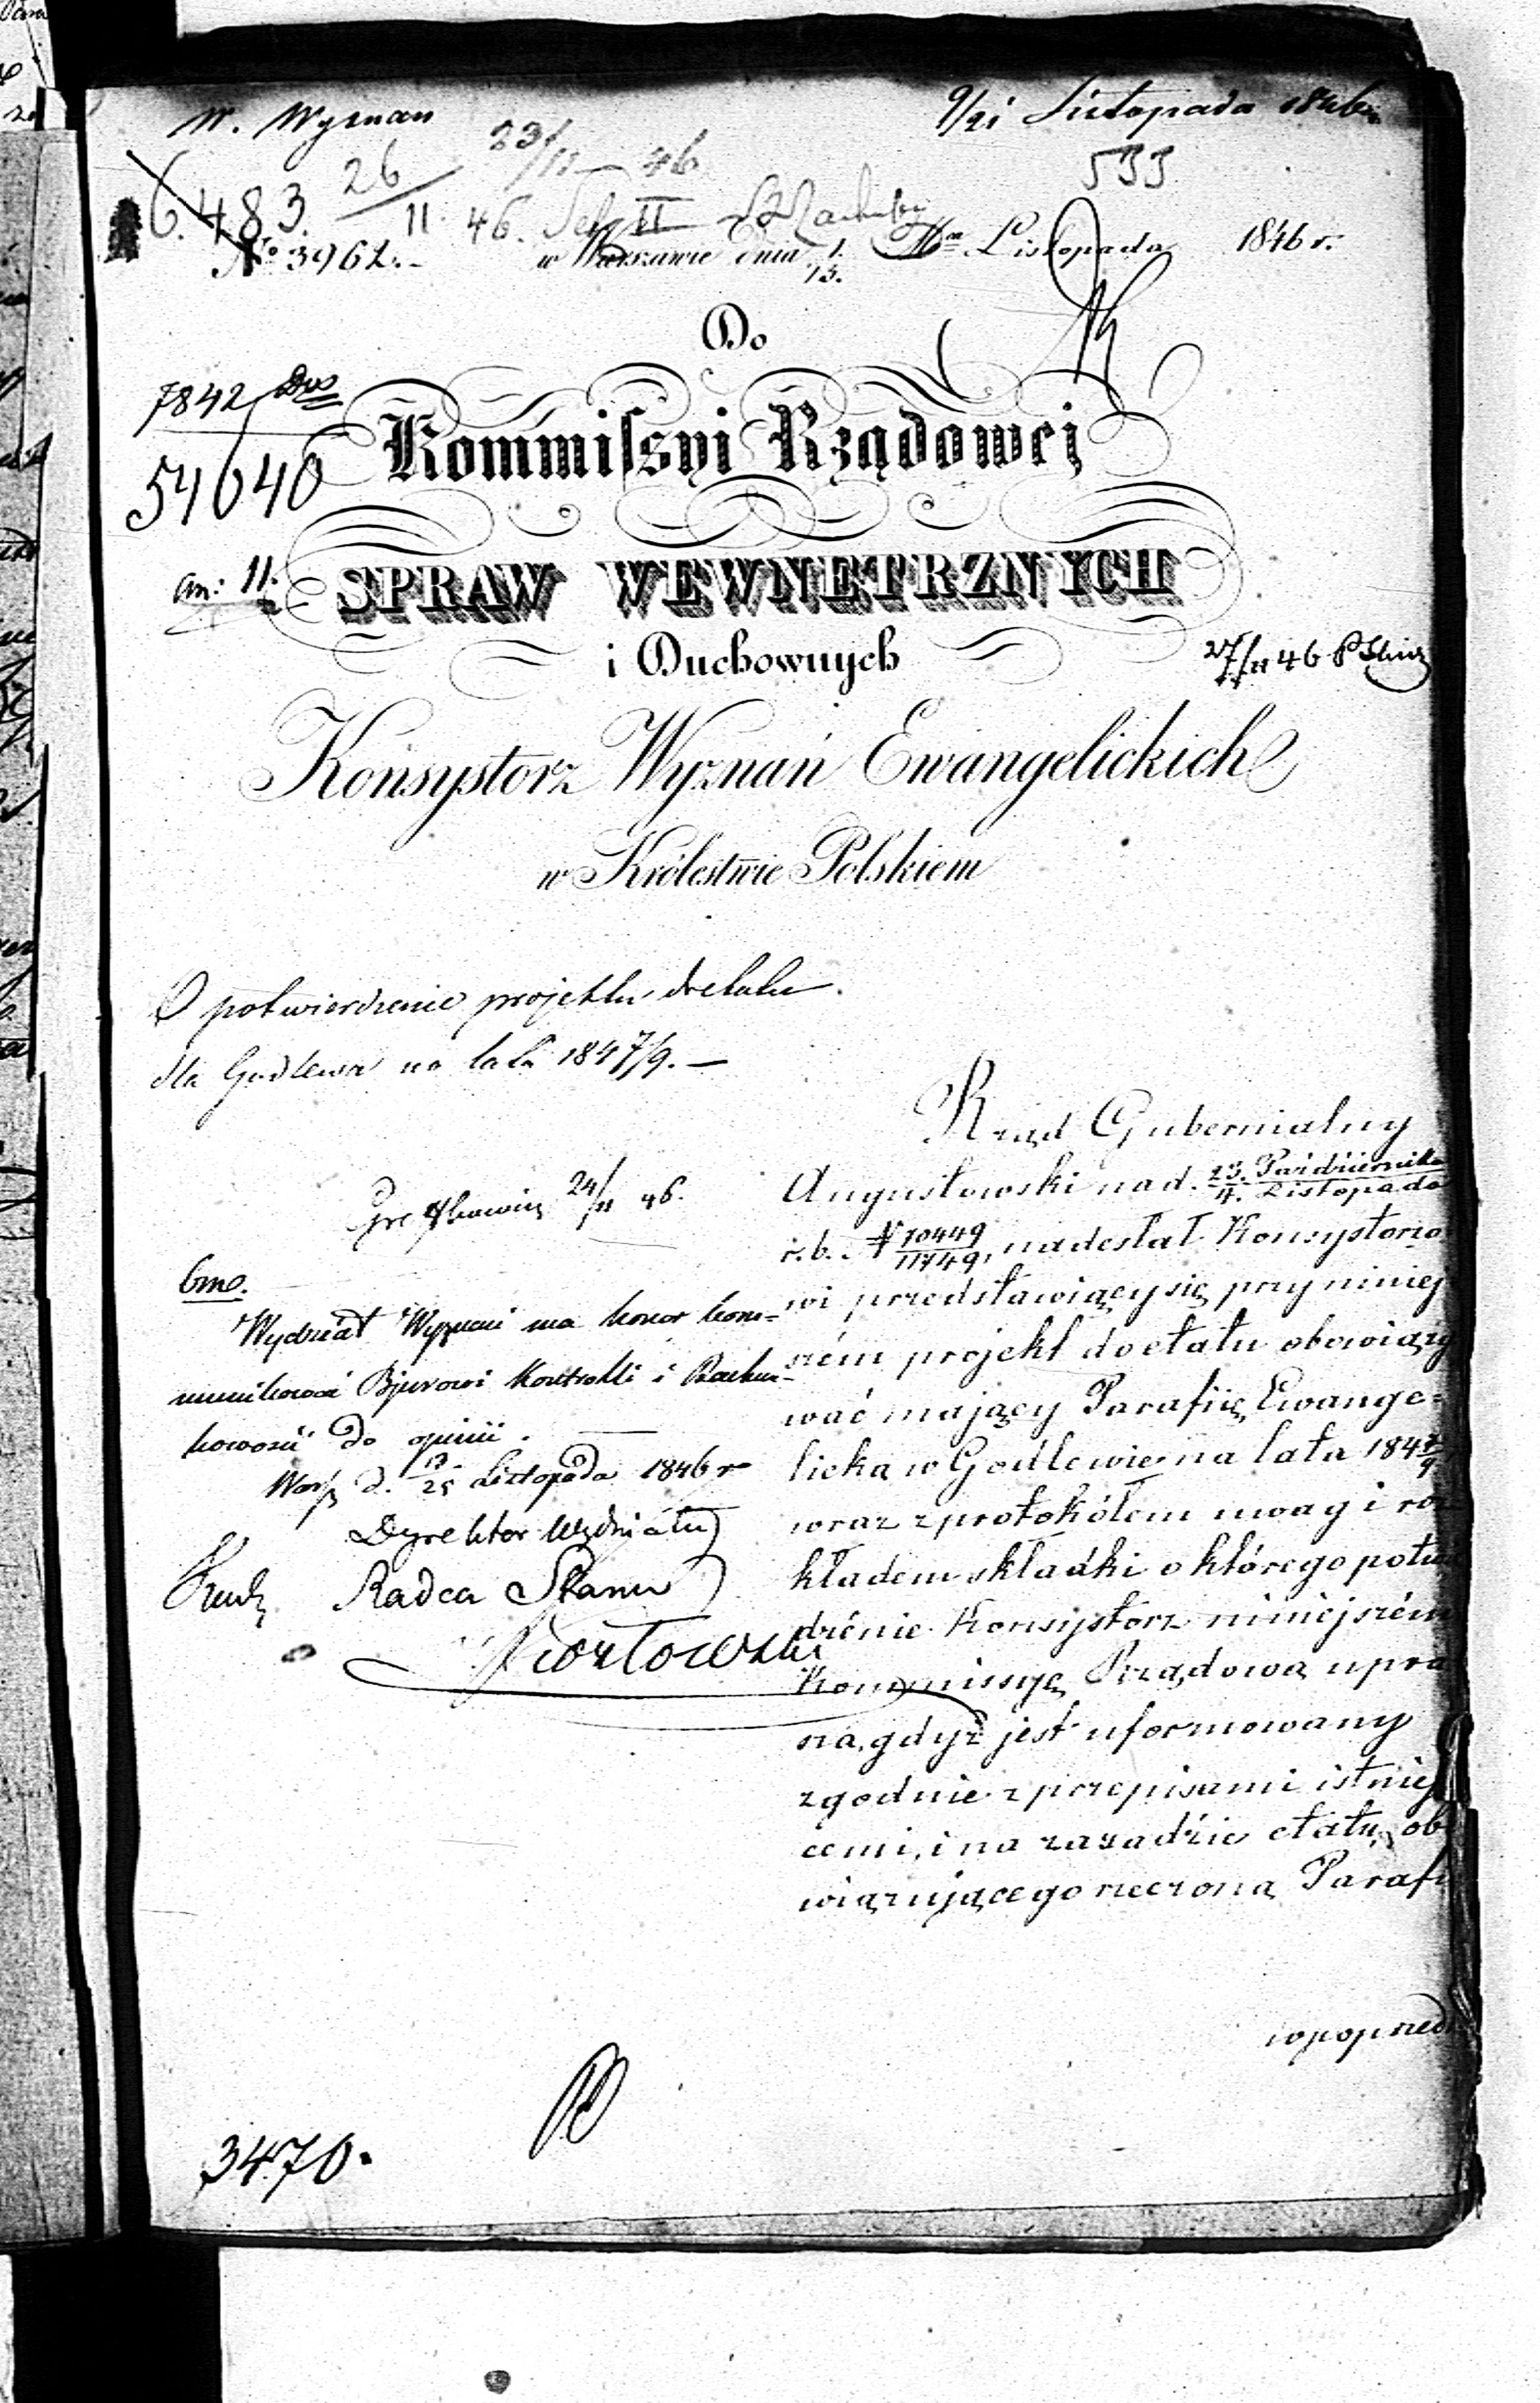 W. Wyznań
9/21 Listopada 1846
23/11 46
533
6.483. 26/11 46. II
No 3962.
w Warszawie dnia 1./13. Listopada 1846 r.
Do
7842
Kommissyi Rządowej
54640
an: 11.
SPRAW WEWNĘTRZNYCH
i Duchownych
27/11 46
Konsystorz Wyznań Ewangelickich
w Królestwie Polskiem
O potwierdzenie projektu do etatu
dla Godlewa na lata 1847/9. —
Rząd Gubernialny
Augustowski nad. 23. Października/4. Listopada
r. b. N 70449/11749, nadesłał Konsystorzo
wi przedstawiający się przy niniej
szém projekt do etatu obowiązy
wać mający Parafiię Ewange=
licką w Godlewie na lata 1847/9
wraz z protokółem uwag i roz
kładem składki o którego potwi
drzénie Konsystorz niniejszém
Kommissyę Rządową upra
sza, gdyż jest uformowany
zgodnie z przepisami istnieją
cemi, i na zasadzie etatu, obo
wiązującego rzeczoną Parafi
w poprzed
24/11 46.
Wydział Wyznań ma honor kom=
munikować Bjurowi Kontrolli i Rachun=
kowości do opinii.
Warsz d. 13/25 Listopada 1846 r
Dyrektor Wydziału
Radca Stanu
3470.